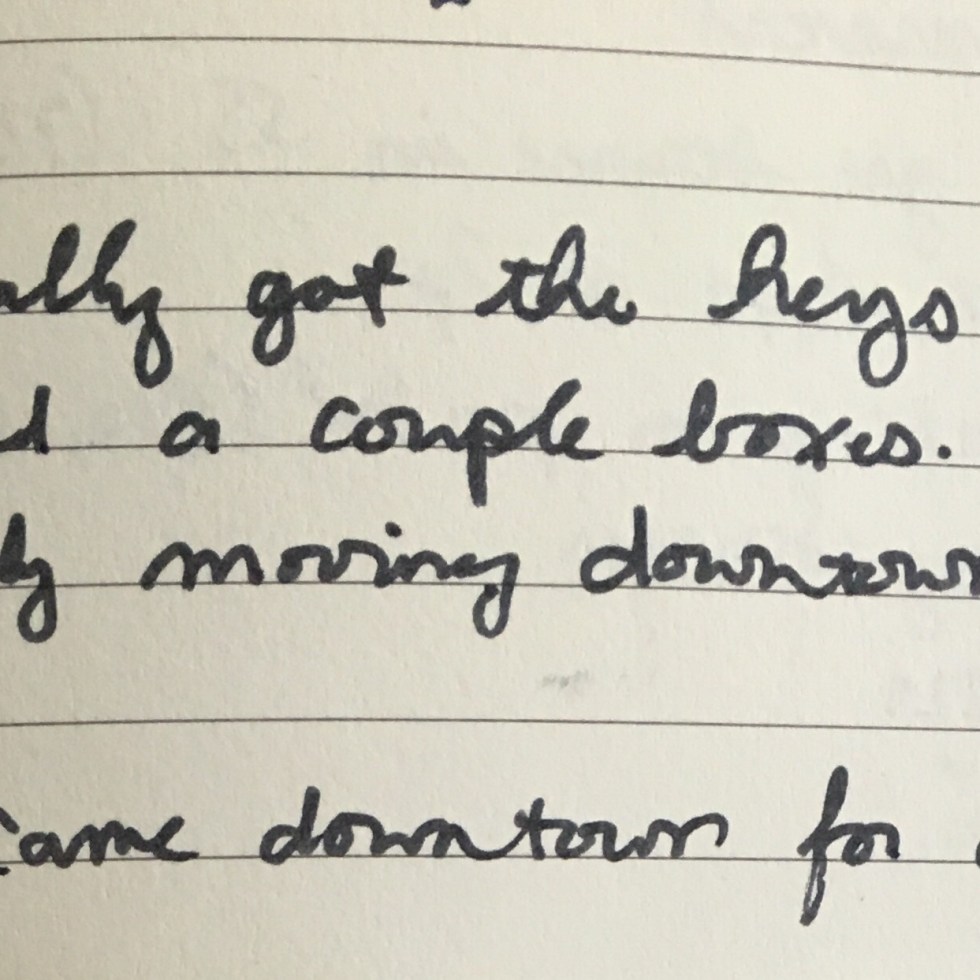 ally got the keys
d a couple boxes.
ly moving downtown
came downtown for